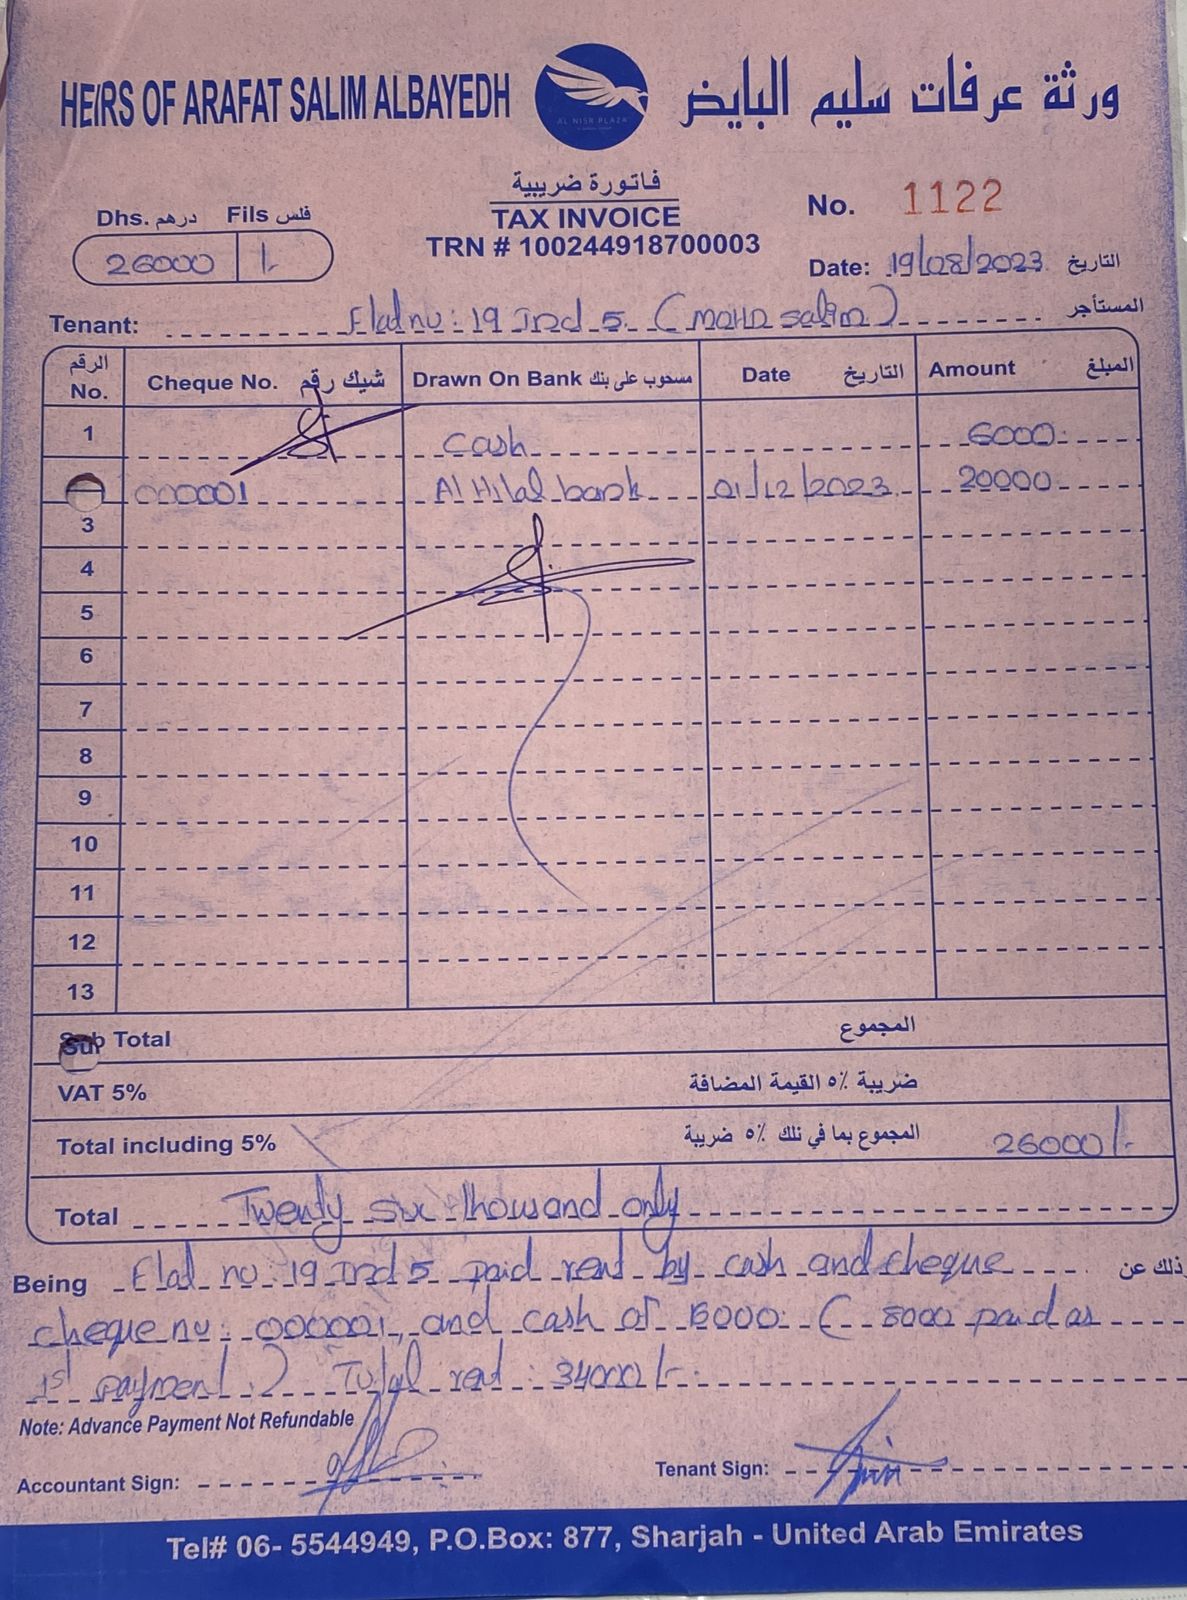 HEIRS OF ARAFAT SALIM ALBAYEDH
AL NISR PLAZA
ورثة عرفات سليم البايض
فاتورة ضريبية
TAX INVOICE
TRN # 100244918700003
Dhs. درهم Fils فلس
26000 /-
No. 1122
Date: 19/08/2023 التاريخ
Tenant: Flat no: 19 Ind 5. (Maha Salim) المستأجر
الرقم No. Cheque No. شيك رقم Drawn On Bank مسحوب على بنك Date التاريخ Amount المبلغ
1 Cash 6000
000001 Al Hilal bank 01/12/2023 20000
3
4
5
6
7
8
9
10
11
12
13
Sub Total المجموع
VAT 5% ضريبة ٥٪ القيمة المضافة
Total including 5% المجموع بما في ذلك ٥٪ ضريبة 26000/-
Total Twenty six thousand only
Being Flat no 19 Ind 5 paid rent by cash and cheque وذلك عن
cheque no: 000001, and cash of 6000. ( 8000 paid as
1st payment.) Total rent: 34000/-
Note: Advance Payment Not Refundable
Accountant Sign:
Tenant Sign:
Tel# 06- 5544949, P.O.Box: 877, Sharjah - United Arab Emirates